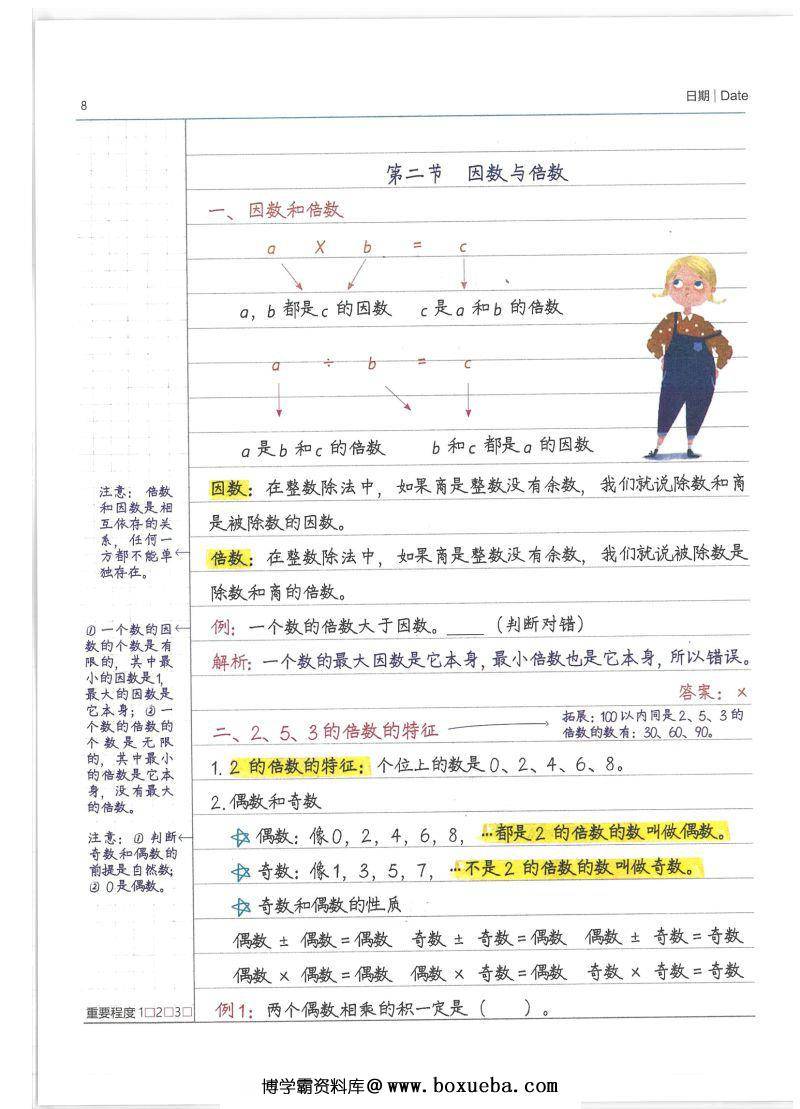 8
日期 | Date
第二节 因数与倍数
一、因数和倍数
a X b = c
a,b 都是c 的因数 c 是a 和b 的倍数
a ÷ b = c
a 是b 和c 的倍数 b 和c 都是a 的因数
因数:在整数除法中,如果商是整数没有余数,我们就说除数和商
是被除数的因数。
倍数:在整数除法中,如果商是整数没有余数,我们就说被除数是
除数和商的倍数。
注意:倍数
和因数是相
互依存的关
系,任何一
方都不能单
独存在。
例:一个数的倍数大于因数。____(判断对错)
解析:一个数的最大因数是它本身,最小倍数也是它本身,所以错误。
答案:×
①一个数的因
数的个数是有
限的,其中最
小的因数是1,
最大的因数是
它本身;②一
个数的倍数的
个数是无限
的,其中最小
的倍数是它本
身,没有最大
的倍数。
二、2、5、3 的倍数的特征
拓展:100以内同是2、5、3的
倍数的数有:30、60、90。
1.2 的倍数的特征:个位上的数是0、2、4、6、8。
2.偶数和奇数
偶数:像0,2,4,6,8,…都是2 的倍数的数叫做偶数。
奇数:像1,3,5,7,…不是2 的倍数的数叫做奇数。
注意:①判断
奇数和偶数的
前提是自然数;
②0是偶数。
奇数和偶数的性质
偶数 ± 偶数=偶数 奇数 ± 奇数=偶数 偶数 ± 奇数=奇数
偶数 × 偶数=偶数 偶数 × 奇数=偶数 奇数 × 奇数=奇数
例1:两个偶数相乘的积一定是( )。
重要程度 1□2□3□
博学霸资料库@www.boxueba.com